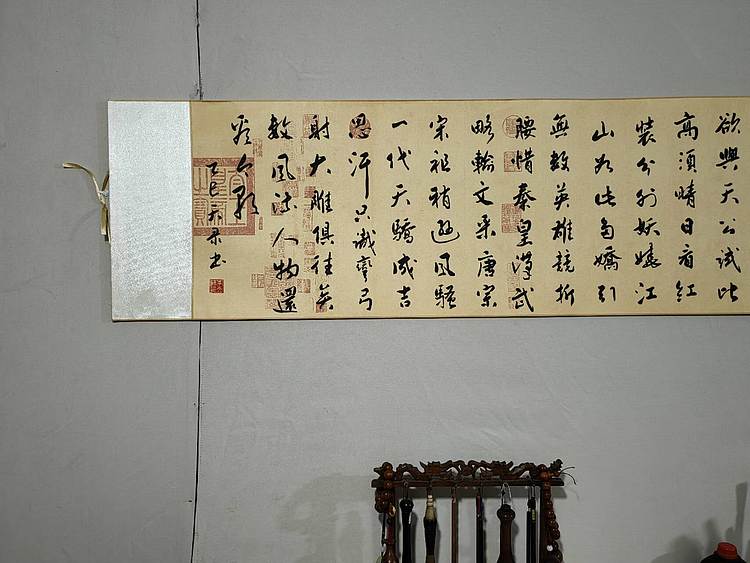 欲與天公試比
高須晴日看紅
裝分外妖嬈江
山如此多嬌引
無數英雄競折
腰惜秦皇漢武
略輸文采唐宗
宋祖稍遜风騷
一代天驕成吉
思汗只識彎弓
射大雕俱往矣
數风流人物還
看今朝
乙巳書